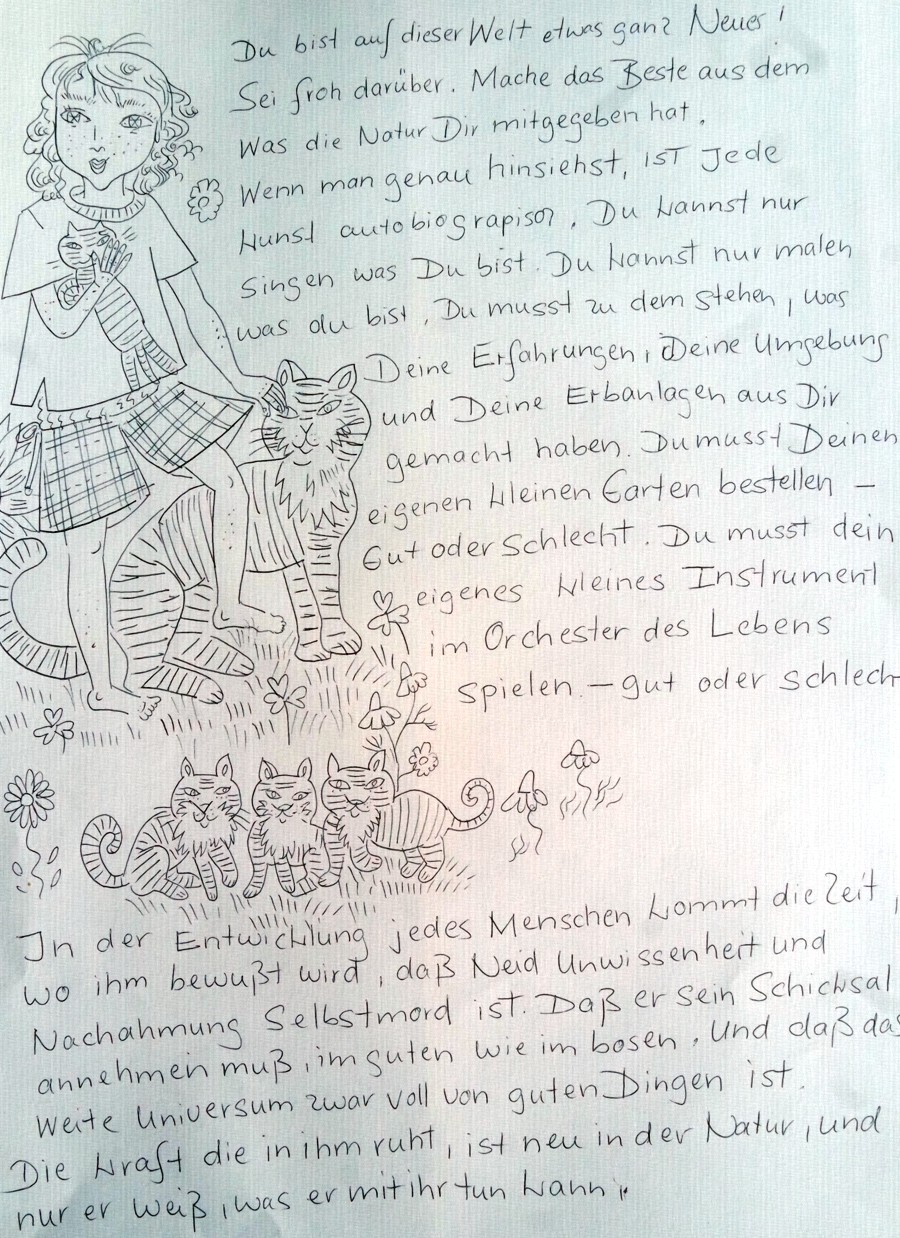 Du bist auf dieser Welt etwas ganz Neues!
Sei froh darüber. Mache das Beste aus dem
Was die Natur Dir mitgegeben hat.
Wenn man genau hinsiehst, ist Jede
Kunst autobiograpisch. Du kannst nur
singen was Du bist. Du kannst nur malen
was du bist. Du musst zu dem stehen, was
Deine Erfahrungen, Deine Umgebung
und Deine Erbanlagen aus Dir
gemacht haben. Du musst Deinen
eigenen kleinen Garten bestellen –
Gut oder schlecht. Du musst dein
eigenes kleines Instrument
im Orchester des Lebens
spielen. – gut oder schlech
In der Entwicklung jedes Menschen kommt die Zeit,
wo ihm bewußt wird, daß Neid Unwissenheit und
Nachahmung Selbstmord ist. Daß er sein Schicksal
annehmen muß, im guten wie im bosen. Und daß das
Weite Universum zwar voll von guten Dingen ist.
Die Kraft die in ihm ruht, ist neu in der Natur, und
nur er weiß, was er mit ihr tun kann.